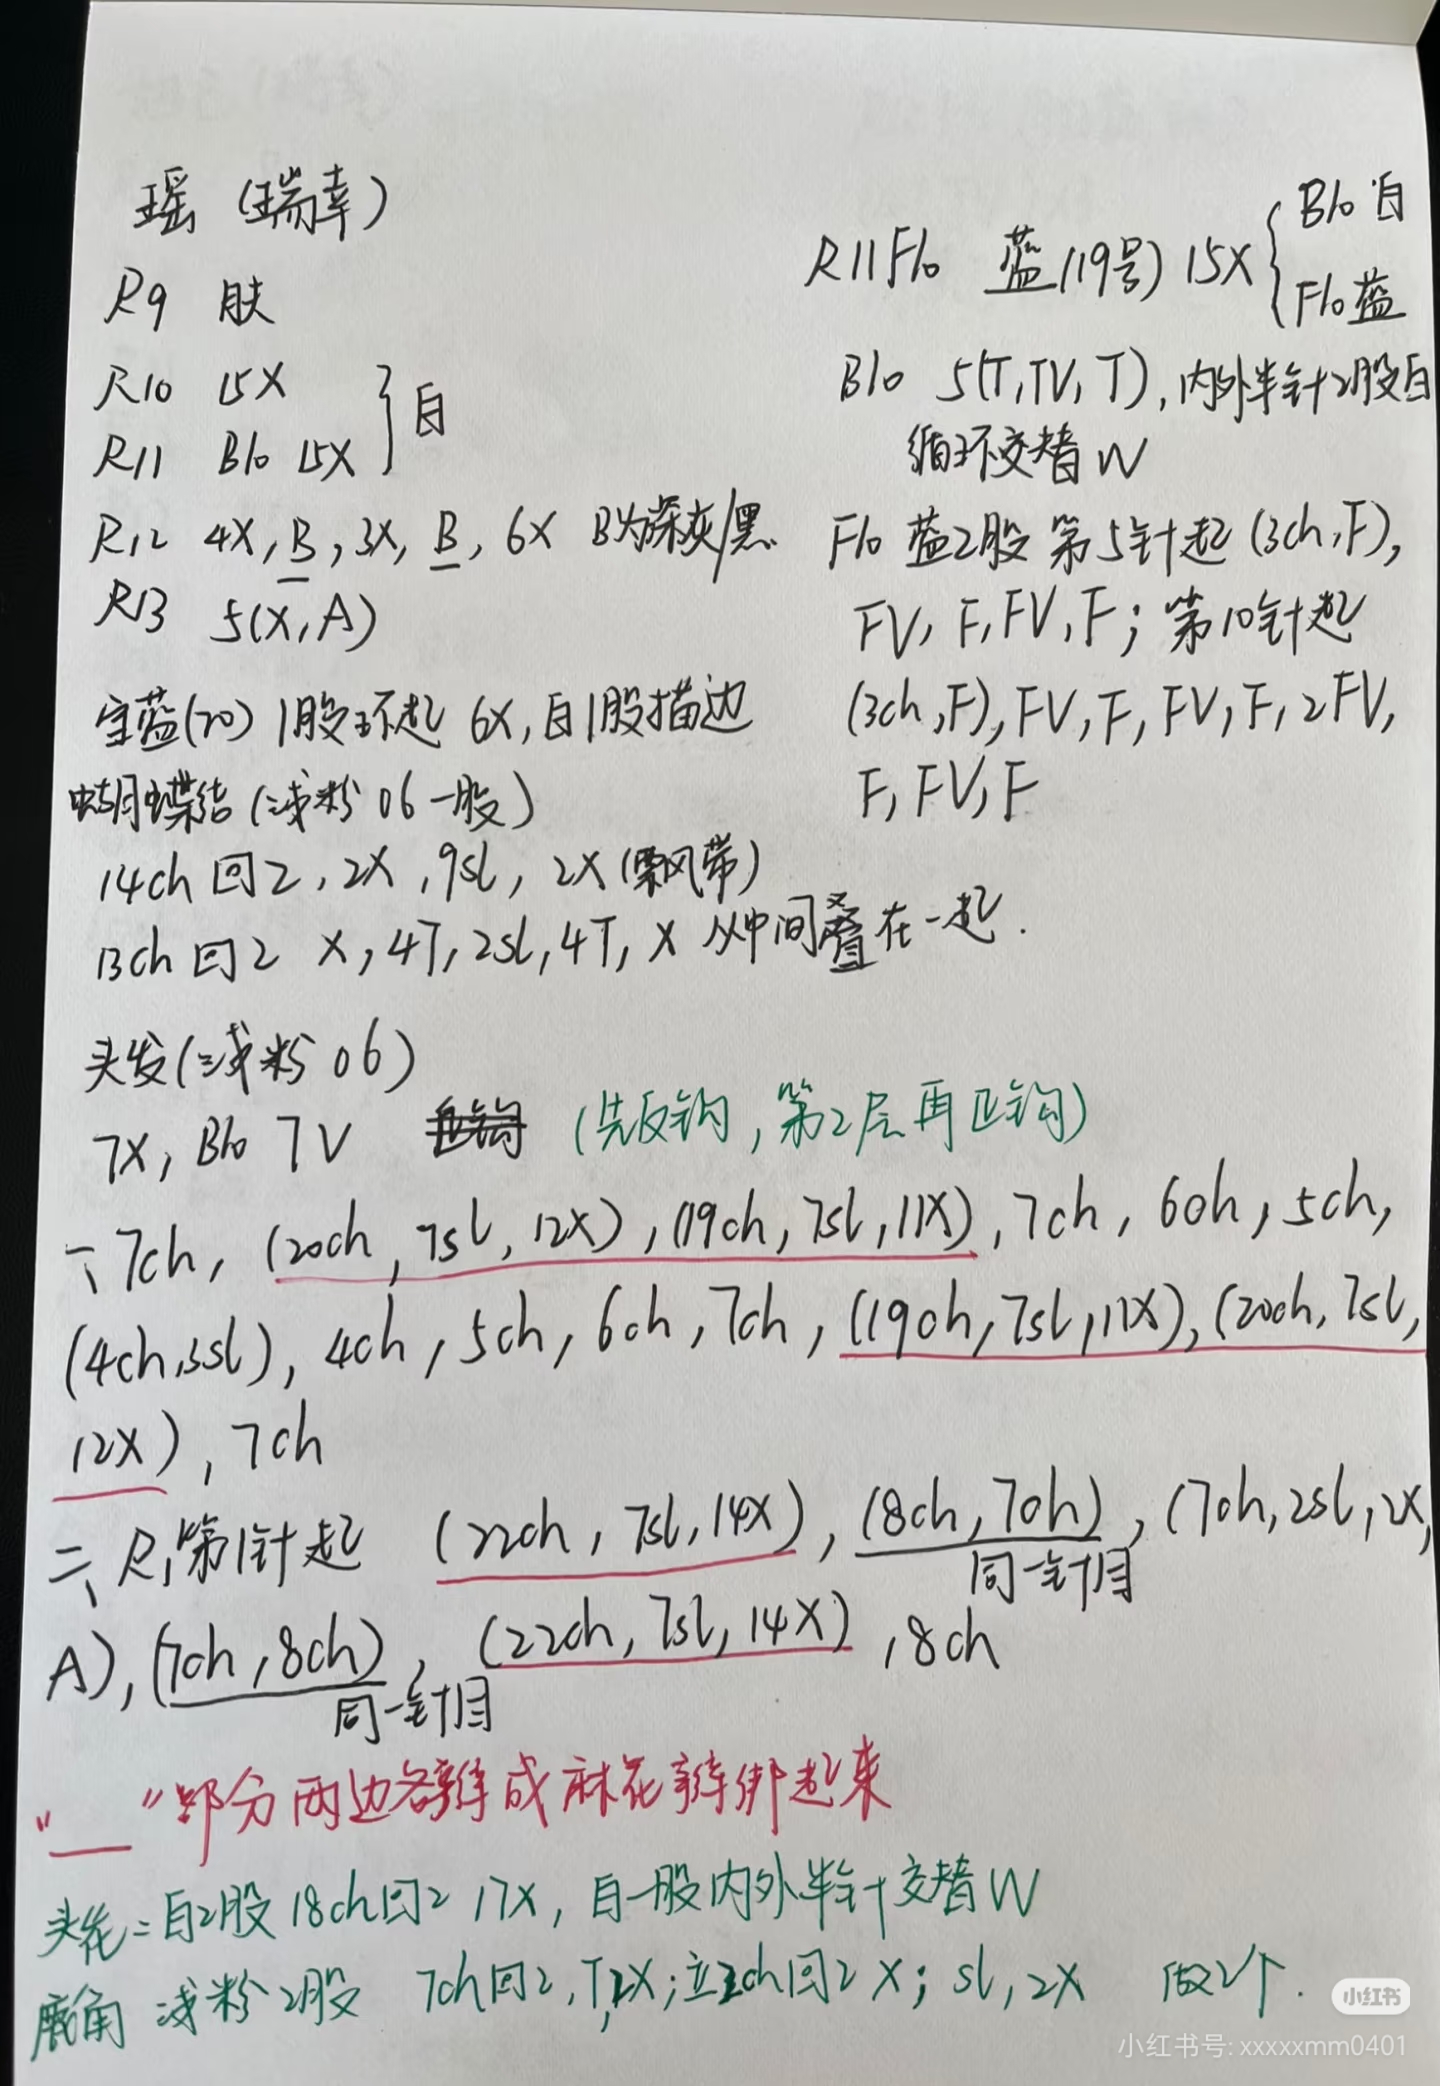 瑶（瑞幸）
R9 肤
R10 15X
R11 Blo 15X } 白
R12 4X, B, 3X, B, 6X B为深灰/黑
R13 5(X, A)
宝蓝(70) 1股环起 6X, 白1股描边
蝴蝶结 (浅粉06一股)
14ch 回2, 2X, 9sl, 2X (飘带)
13ch 回2 X, 4T, 2sl, 4T, X 从中间叠在一起.
R11 Flo 蓝(19号) 15X { Blo 白
Flo 蓝
Blo 5(T, TV, T), 内外半针2股白
循环交替W
Flo 蓝2股 第5针起 (3ch, F),
FV, F, FV, F; 第10针起
(3ch, F), FV, F, FV, F, 2FV,
F, FV, F
头发(浅粉06)
7X, Blo 7V (先反钩, 第2层再正钩)
一、7ch, (20ch, 7sl, 12X), (19ch, 7sl, 11X), 7ch, 6ch, 5ch,
(4ch, 3sl), 4ch, 5ch, 6ch, 7ch, (19ch, 7sl, 11X), (20ch, 7sl,
12X), 7ch
二、R1第1针起 (22ch, 7sl, 14X), (8ch, 7ch), (7ch, 2sl, 2X,
同一针目
A), (7ch, 8ch), (22ch, 7sl, 14X), 8ch
同一针目
"__"部分两边各辫成麻花辫绑起来
头花=白2股 18ch回2 17X, 白一股内外半针交替W
鹿角 浅粉2股 7ch回2, T, 2X; 立2ch回2 X; sl, 2X 做2个.
小红书
小红书号: xxxxxmm0401